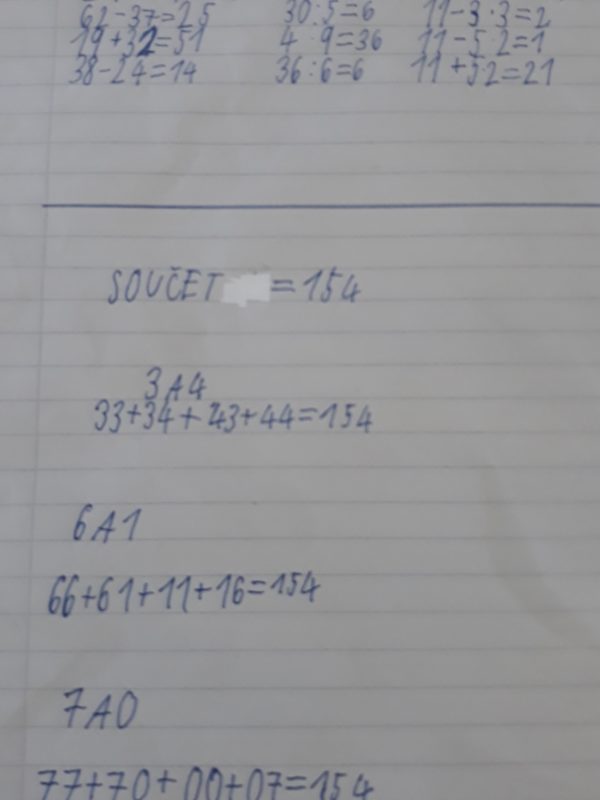 62-37=25 30:5=6 11-3·3=2
19+32=51 4·9=36 11-5·2=1
38-24=14 36:6=6 11+52=21
SOUČET =154
3A4
33+34+43+44=154
6A1
66+61+11+16=154
7A0
77+70+00+07=154